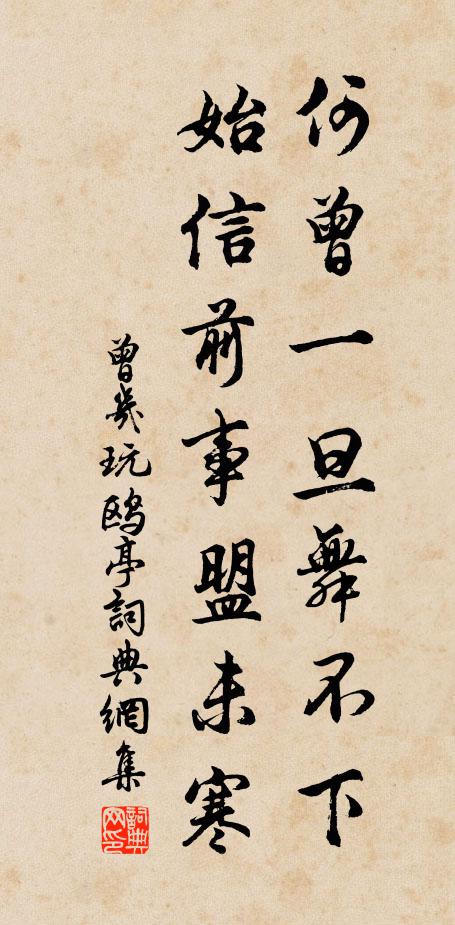 何曾一旦舞不下
始信前事盟未寒
曾幾玩鷗亭詞典網集
詞典網印